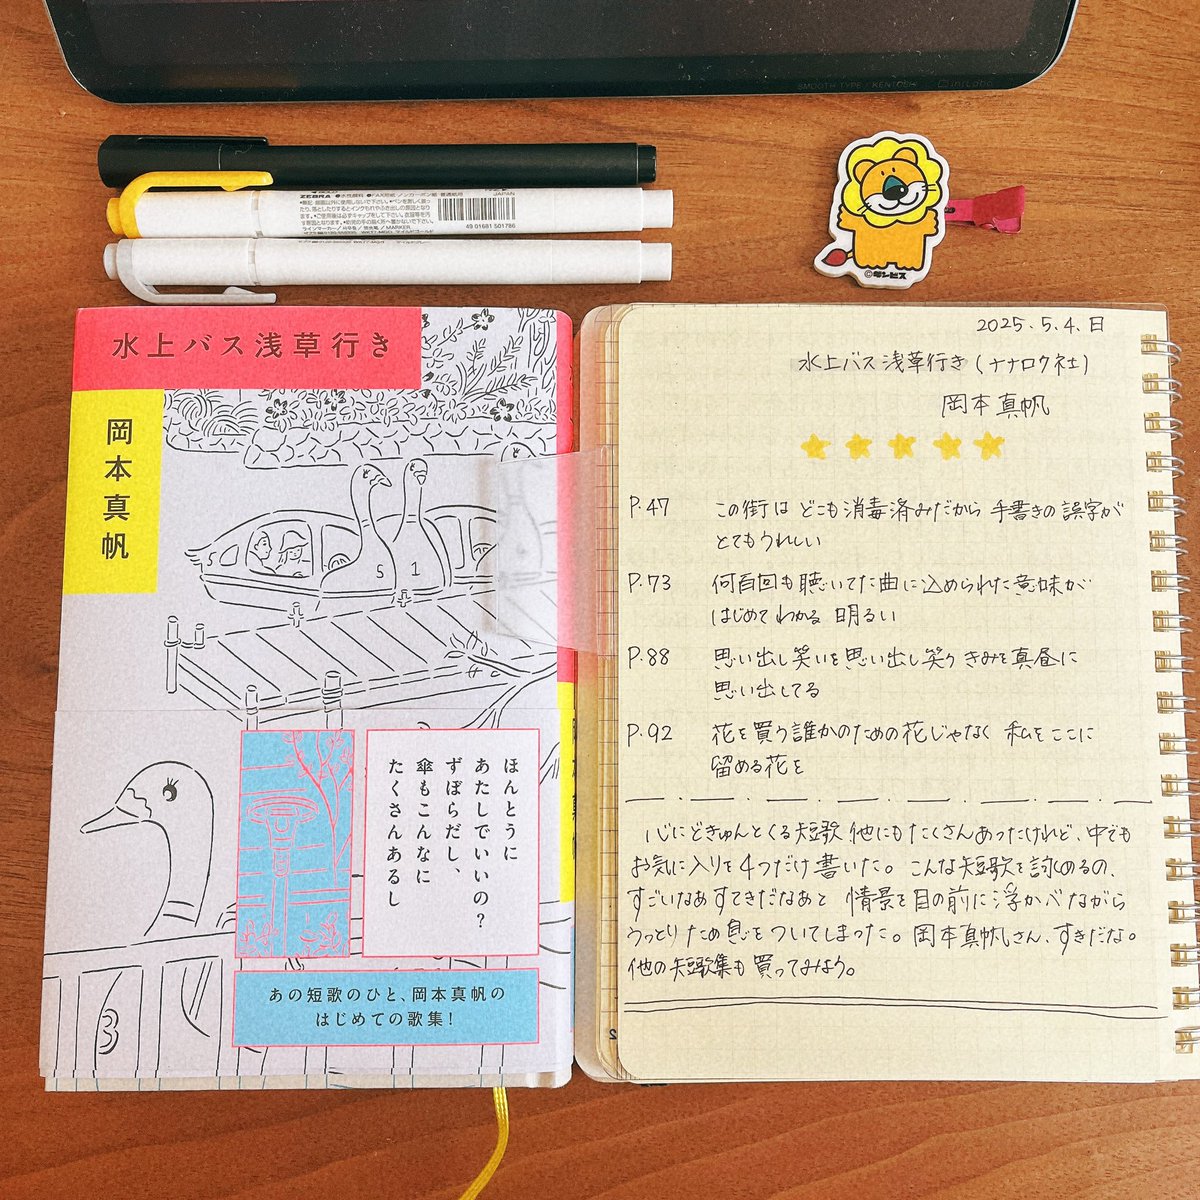 SMOOTH TYPE / KENTOUS
ZEBRA
JAPAN
49 01681 501786
©ギンビス
水上バス浅草行き
岡本真帆
5 1
3
ほんとうに
あたしでいいの?
ずぼらだし、
傘もこんなに
たくさんあるし
あの短歌のひと、岡本真帆の
はじめての歌集!
2025.5.4.日
水上バス浅草行き(ナナロク社)
岡本真帆
P.47 この街は どこも消毒済みだから 手書きの誤字が
とてもうれしい
P.73 何百回も聴いてた曲に込められた意味が
はじめてわかる 明るい
P.88 思い出し笑いを思い出し笑う きみを真昼に
思い出してる
P.92 花を買う誰かのための花じゃなく 私をここに
留める花を
心にどきゅんとくる短歌 他にもたくさんあったけれど、中でも
お気に入りを4つだけ書いた。こんな短歌を詠めるの、
すごいなあすてきだなあと 情景を目の前に浮かべながら
うっとりため息をついてしまった。岡本真帆さん、すきだな。
他の短歌集も買ってみよう。